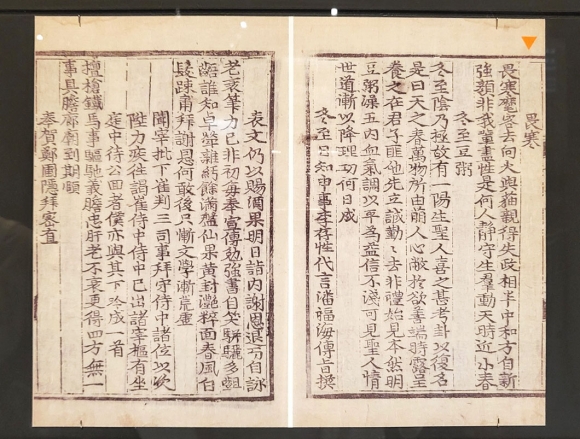 畏寒
畏寒魔客去向火與猫親得失政相半中和方自新
強顔非我輩盡性是何人靜守生羣動天時近小春
冬至豆粥
冬至陰乃極故有一陽生聖人喜之甚考卦以復名
是曰天之春萬物所由萌人心敝於欲善端時露呈
養之在君子匪他先立誠勤々去非禮始見本然明
豆粥澡五內血氣調以平爲益信不淺可見聖人情
世道漸以降理功何日成
冬至日知申事李存性代言潘福海傳旨撰
表文仍以賜酒果明日詣内謝恩退而自詠
老衰筆力已非初每奉宣傳勉強書自笑駢驪多齟
齬誰知卓犖雜紆餘滿盤仙果黃封灔粹面春風白
髮踈肅拜謝恩何敢後只慚文學漸荒虛
闔宰批下崔判三司事拜守侍中諸位以次
陞力疾往謁崔侍中侍中已出諸宰樞有坐
庭中待公回者僕亦與其下吟成一首
擅槍鐵馬事驅馳義膽忠肝老不衰更得四方無一
事具瞻廊廟到期頤
奉賀鄭圃隱拜密直